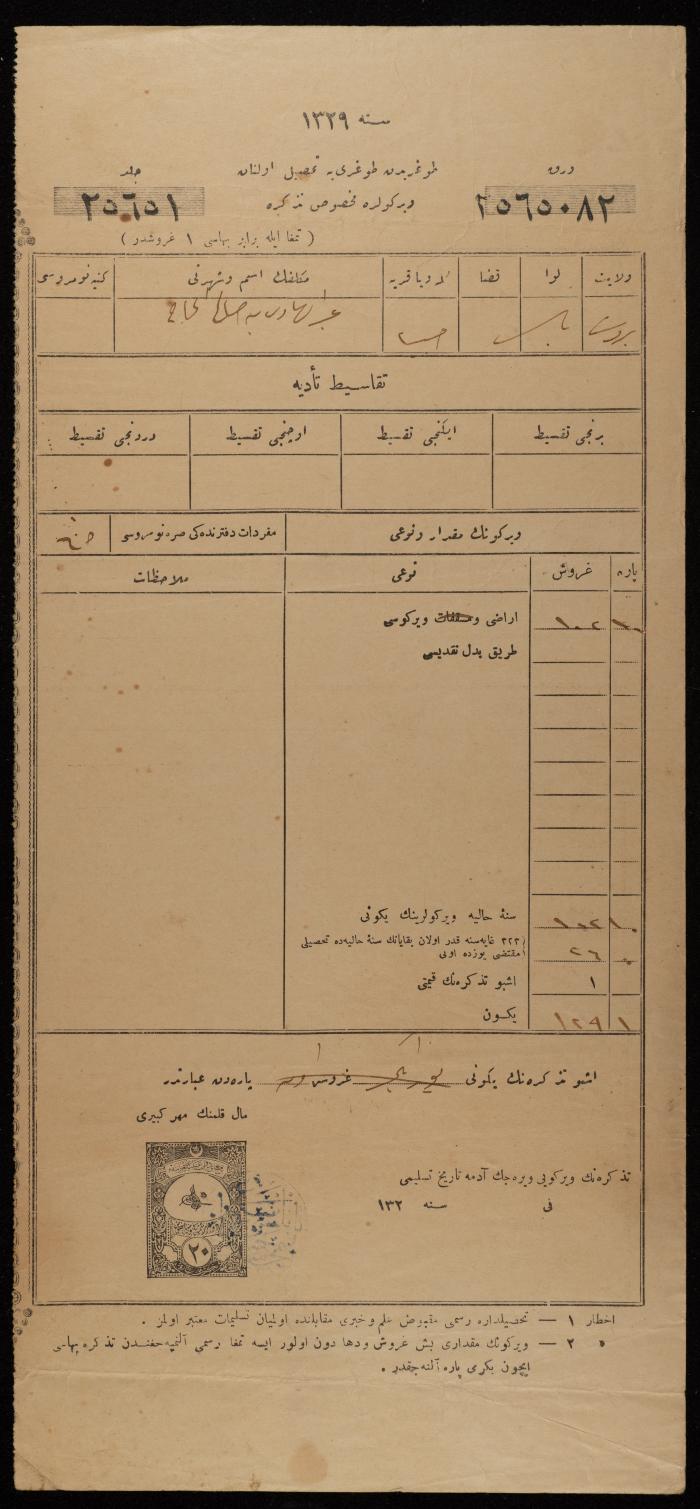 سنه ١٣٢٩
ورق
٢٥٦٥٠٨٢
طوغریدن طوغری یه تحصیل اولنان
ویرکولره مخصوص تذکره
جلد
٢٥٦٥١
( تمغا ایله برابر بهاسی ١ غروشدر )
ولایت لوا قضا قریه مکلفك اسم وشهرتی کنیه نومروسی
بیروت
تقاسیط تأدیه
برنجی تقسیط ایکنجی تقسیط اوچنجی تقسیط دردنجی تقسیط
ویرکونك مقدار ونوعی مفردات دفترنده کی صره نومروسی
پاره غروش نوعی ملاحظات
١٠ ١٠٢ اراضی ومسقفات ویرکوسی
طریق بدل نقدیسی
١٠ ١٠٢ سنهٔ حالیه ویرکولرینك یکونی
غایه سنه قدر اولان بقایانك سنهٔ حالیه ده تحصیلی
٢٦ مقتضی یوزده اونی
١ اشبو تذکره نك قیمتی
١٠ ١٢٩ یکون
اشبو تذکره نك یکونی غروش پاره دن عبارتدر
مال قلمنك مهر کبیری
تذکره نك ویرکویی ویره جك آدمه تاریخ تسلیمی
فی سنه ١٣٢
٢٠
اخطار ١ — تحصیلداره رسمی مقبوض علم وخبری مقابلنده اولمیان تسلیمات معتبر اولمز .
» ٢ — ویرکونك مقداری بش غروش ودها دون اولور ایسه تمغا رسمی آلنمیه جغندن تذکره بهاسی
ایچون یکرمی پاره آلنه جقدر .